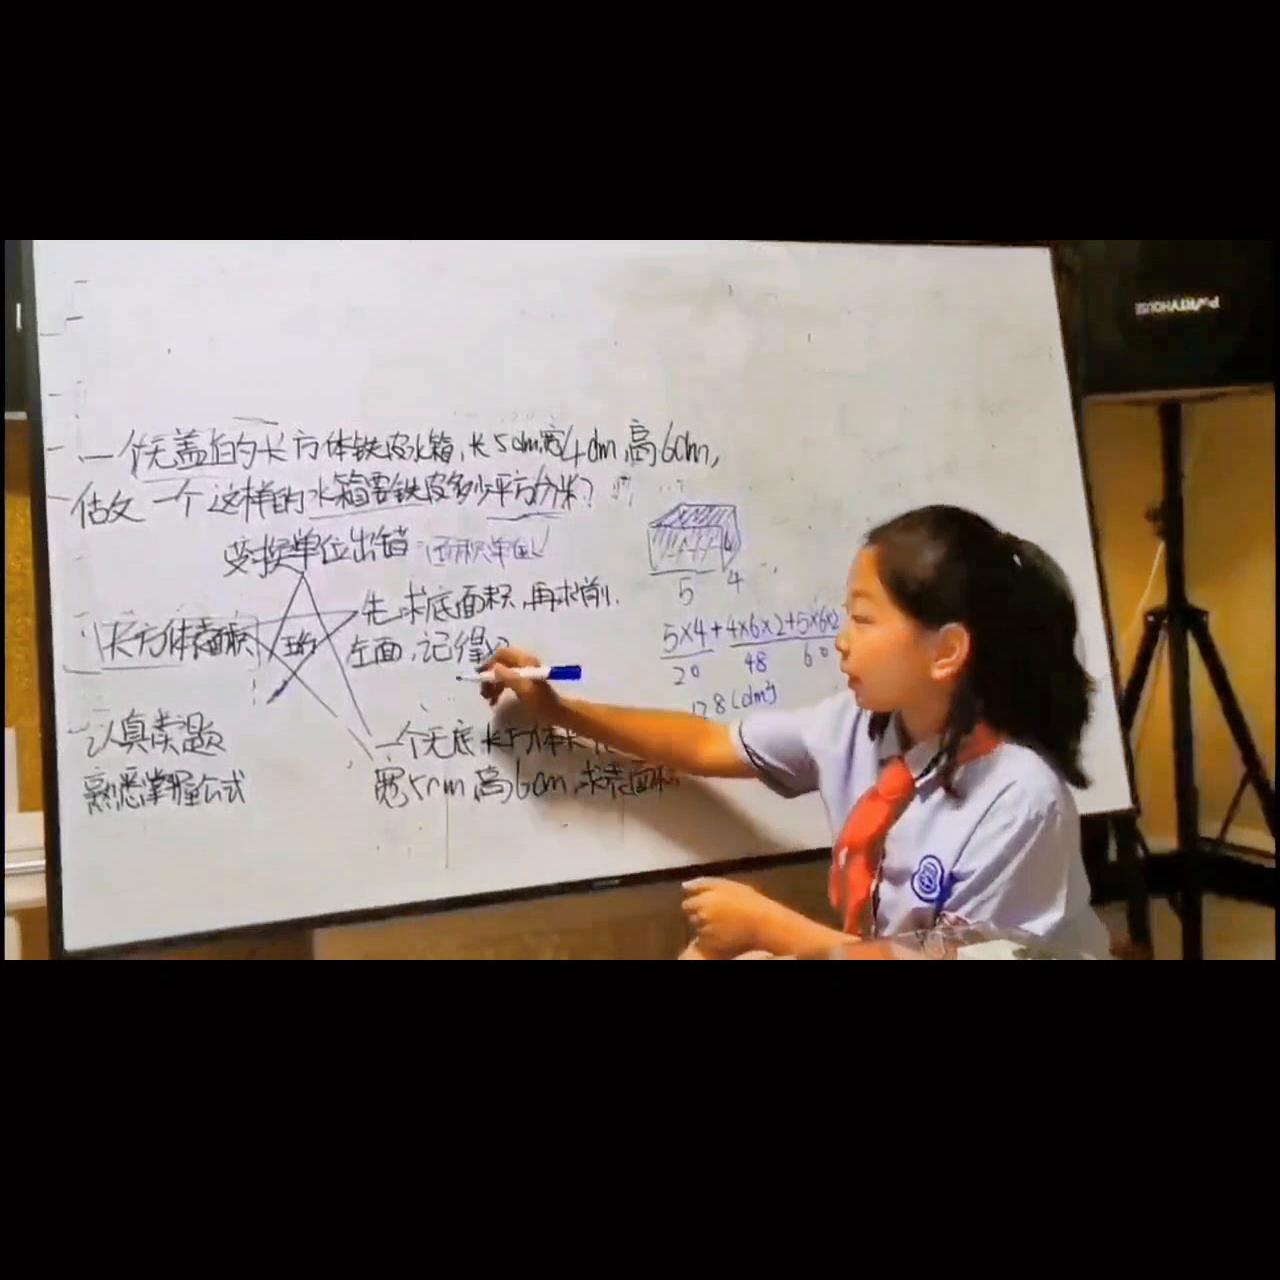 一个无盖的长方体铁皮水箱,长5dm,宽4dm,高6dm,
做 一个这样的水箱需铁皮多少平方分米?
变换单位出错 面积单位
5 4
先求底面积,再求前、
长方体表面积
左面,记得
5×4+4×6×2+5×6×2
20 48 60
128(dm²)
认真读题
熟悉掌握公式
一个无底长方体长
宽5cm,高6cm,求表面积
PARTYHOUSE